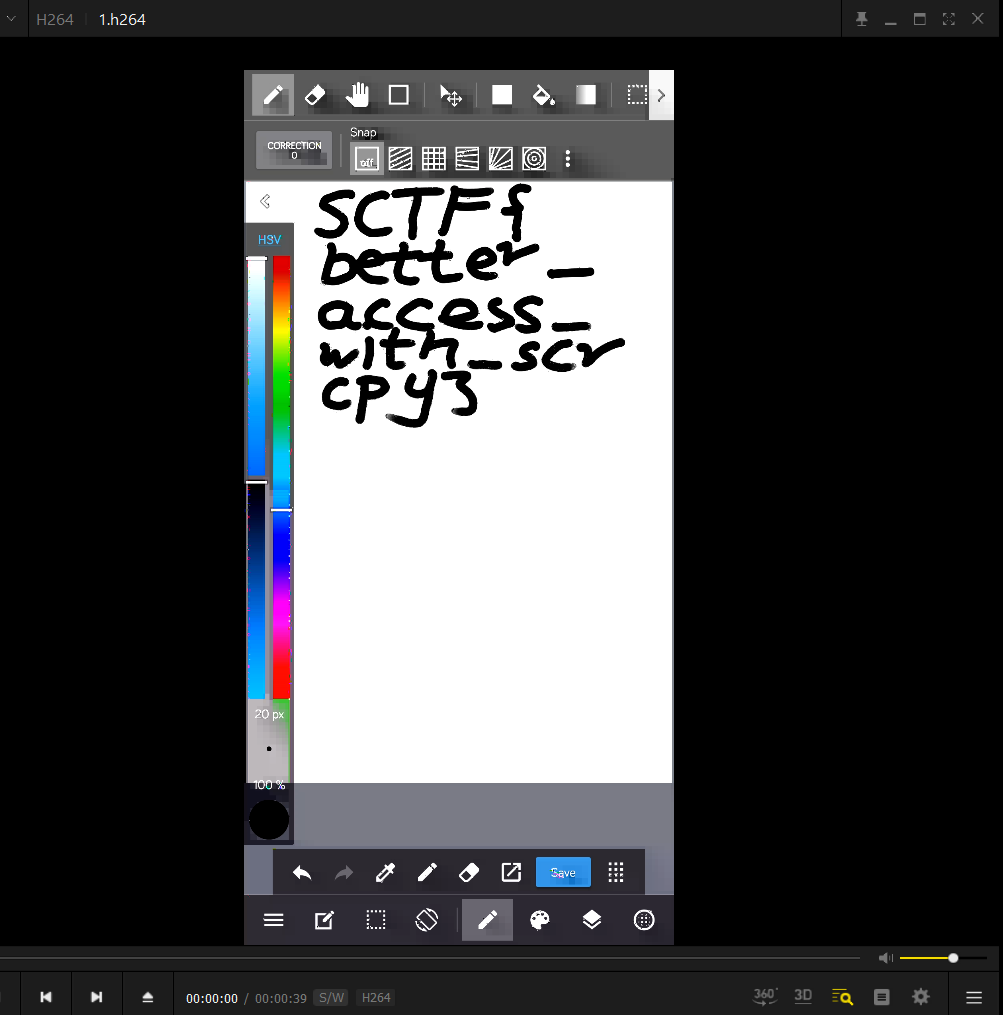 H264 1.h264
CORRECTION
0
Snap
off
HSV
SCTF{
better_
access_
with_scr
cpy}
20 px
100 %
Save
00:00:00 / 00:00:39 S/W H264
360° 3D